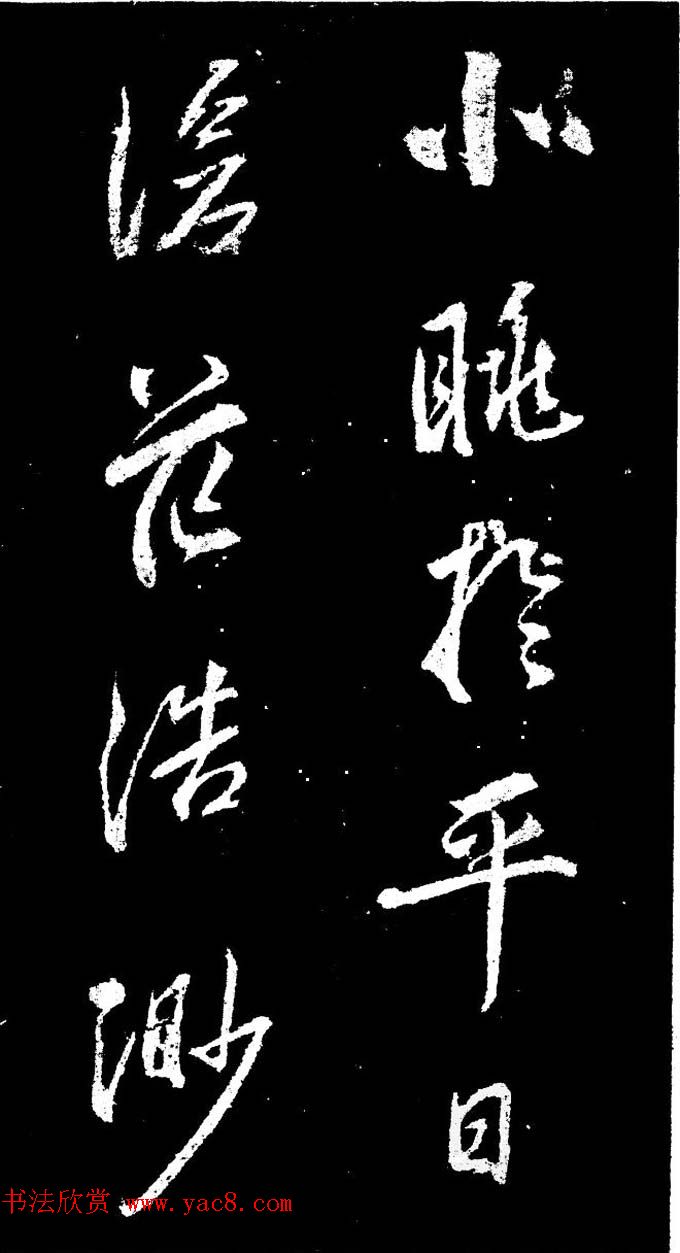 小眺於平日
滄茫浩渺
书法欣赏 www.yac8.com